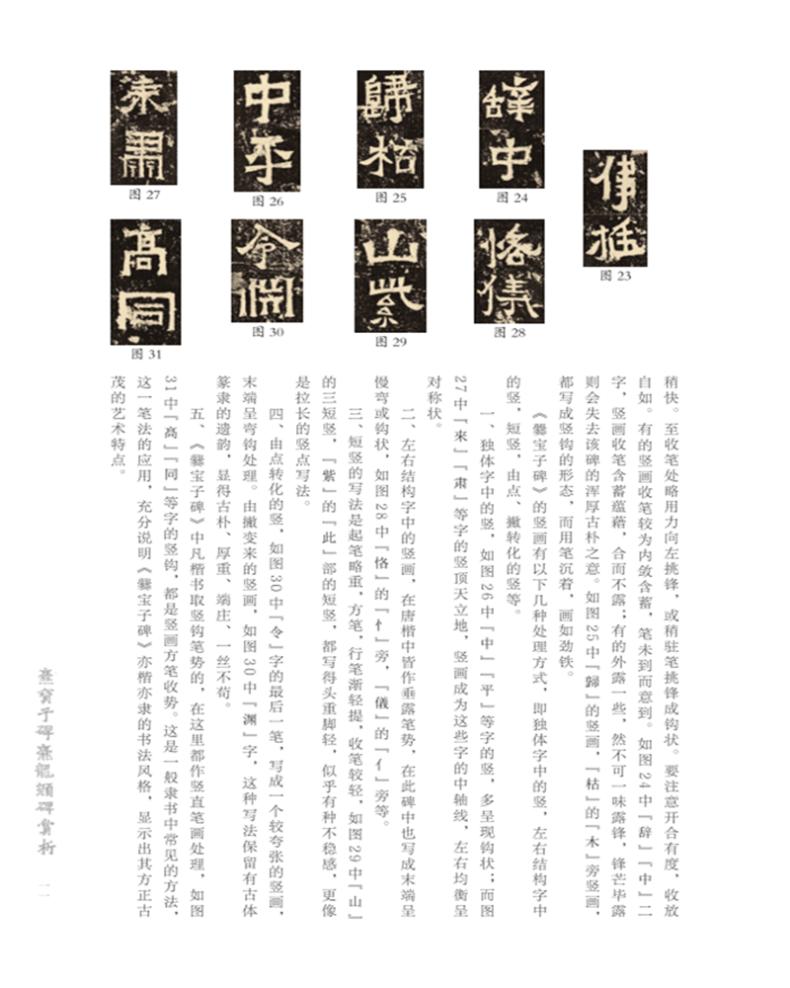 图 23
图 24
图 25
图 26
图 27
图 28
图 29
图 30
图 31
辞中
歸枯
中平
来肃
恪儀
山紫
令渊
高同
稍快。至收笔处略用力向左挑锋，或稍驻笔挑锋成钩状。要注意开合有度，收放
自如。有的竖画收笔较为内敛含蓄，笔未到而意到。如图24中“辞”“中”二
字，竖画收笔含蓄蕴藉，含而不露；有的外露一些，然不可一味露锋，锋芒毕露
则会失去该碑的浑厚古朴之意。如图25中“歸”的竖画，“枯”的“木”旁竖画，
都写成竖钩的形态，而用笔沉着，画如劲铁。
《爨宝子碑》的竖画有以下几种处理方式，即独体字中的竖，左右结构字中
的竖，短竖，由点、撇转化的竖等。
一、独体字中的竖，如图26中“中”“平”等字的竖，多呈现钩状；而图
27中“来”“肃”等字的竖顶天立地，竖画成为这些字的中轴线，左右均衡呈
对称状。
二、左右结构字中的竖画，在唐楷中皆作垂露笔势，在此碑中也写成末端呈
慢弯或钩状，如图28中“恪”的“忄”旁，“儀”的“亻”旁等。
三、短竖的写法是起笔略重，方笔，行笔渐轻提，收笔较轻，如图29中“山”
的三短竖，“紫”的“此”部的短竖，都写得头重脚轻，似乎有种不稳感，更像
是拉长的竖点写法。
四、由点转化的竖，如图30中“令”字的最后一笔，写成一个较夸张的竖画，
末端呈弯钩处理。由撇变来的竖画，如图30中“渊”字，这种写法保留有古体
篆隶的遗韵，显得古朴、厚重、端庄、一丝不苟。
五、《爨宝子碑》中凡楷书取竖钩笔势的，在这里都作竖直笔画处理，如图
31中“高”“同”等字的竖钩，都是竖画方笔收势。这是一般隶书中常见的方法，
这一笔法的应用，充分说明《爨宝子碑》亦楷亦隶的书法风格，显示出其方正古
茂的艺术特点。
爨寳子碑爨龍顔碑賞析
一一